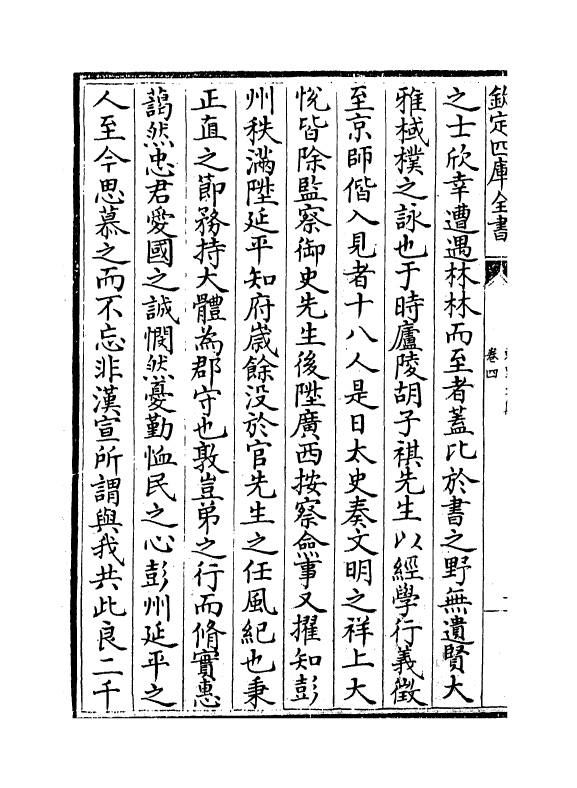 欽定四庫全書
卷四
之士欣幸遭遇林林而至者蓋比於書之野無遺賢大
雅棫樸之詠也于時廬陵胡子祺先生以經學行義徵
至京師偕入見者十八人是日太史奏文明之祥上大
悅皆除監察御史先生後陞廣西按察僉事又擢知彭
州秩滿陞延平知府歲餘没於官先生之任風紀也秉
正直之節務持大體為郡守也敦豈弟之行而脩實惠
藹然忠君愛國之誠憫然憂勤恤民之心彭州延平之
人至今思慕之而不忘非漢宣所謂與我共此良二千